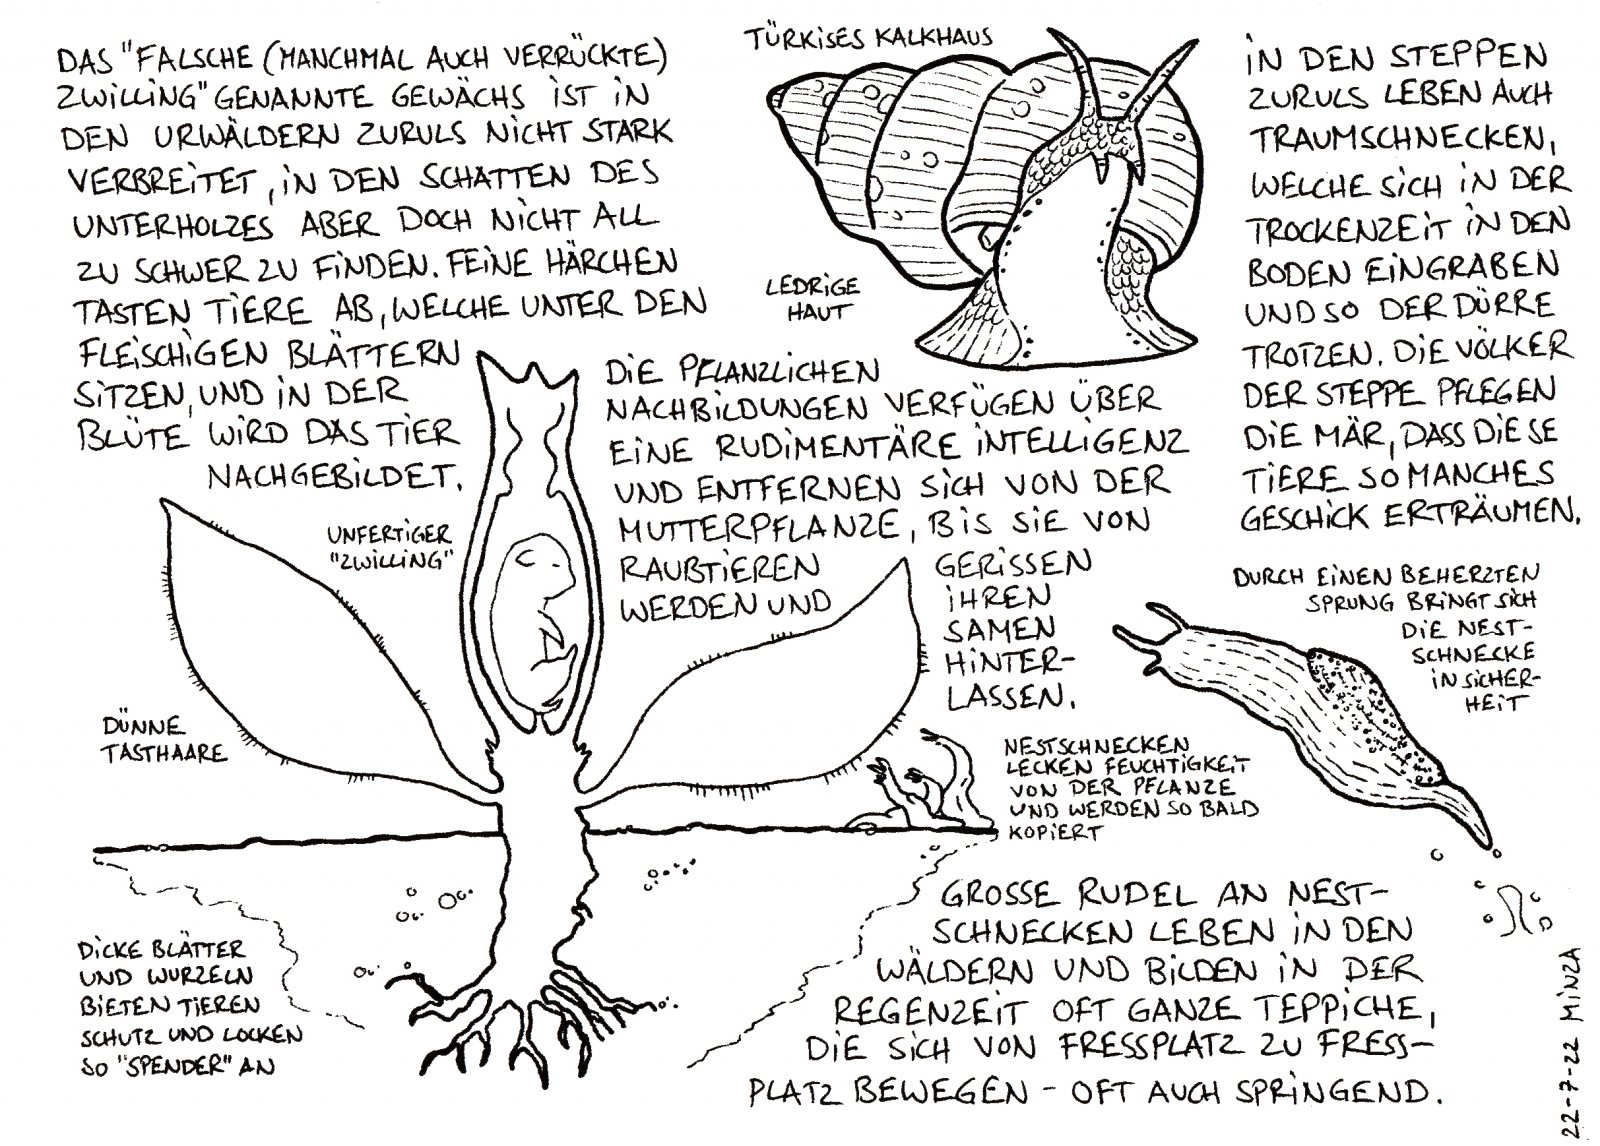 DAS "FALSCHE (MANCHMAL AUCH VERRÜCKTE)
ZWILLING" GENANNTE GEWÄCHS IST IN
DEN URWÄLDERN ZURULS NICHT STARK
VERBREITET, IN DEN SCHATTEN DES
UNTERHOLZES ABER DOCH NICHT ALL
ZU SCHWER ZU FINDEN. FEINE HÄRCHEN
TASTEN TIERE AB, WELCHE UNTER DEN
FLEISCHIGEN BLÄTTERN
SITZEN, UND IN DER
BLÜTE WIRD DAS TIER
NACHGEBILDET.
UNFERTIGER
"ZWILLING"
DÜNNE
TASTHAARE
DICKE BLÄTTER
UND WURZELN
BIETEN TIEREN
SCHUTZ UND LOCKEN
SO "SPENDER" AN
TÜRKISES KALKHAUS
LEDRIGE
HAUT
DIE PFLANZLICHEN
NACHBILDUNGEN VERFÜGEN ÜBER
EINE RUDIMENTÄRE INTELLIGENZ
UND ENTFERNEN SICH VON DER
MUTTERPFLANZE, BIS SIE VON
RAUBTIEREN GERISSEN
WERDEN UND IHREN
SAMEN
HINTER-
LASSEN.
NESTSCHNECKEN
LECKEN FEUCHTIGKEIT
VON DER PFLANZE
UND WERDEN SO BALD
KOPIERT
IN DEN STEPPEN
ZURULS LEBEN AUCH
TRAUMSCHNECKEN,
WELCHE SICH IN DER
TROCKENZEIT IN DEN
BODEN EINGRABEN
UND SO DER DÜRRE
TROTZEN. DIE VÖLKER
DER STEPPE PFLEGEN
DIE MÄR, DASS DIESE
TIERE SO MANCHES
GESCHICK ERTRÄUMEN.
DURCH EINEN BEHERZTEN
SPRUNG BRINGT SICH
DIE NEST-
SCHNECKE
IN SICHER-
HEIT
GROSSE RUDEL AN NEST-
SCHNECKEN LEBEN IN DEN
WÄLDERN UND BILDEN IN DER
REGENZEIT OFT GANZE TEPPICHE,
DIE SICH VON FRESSPLATZ ZU FRESS-
PLATZ BEWEGEN - OFT AUCH SPRINGEND.
22-7-22 MINZA